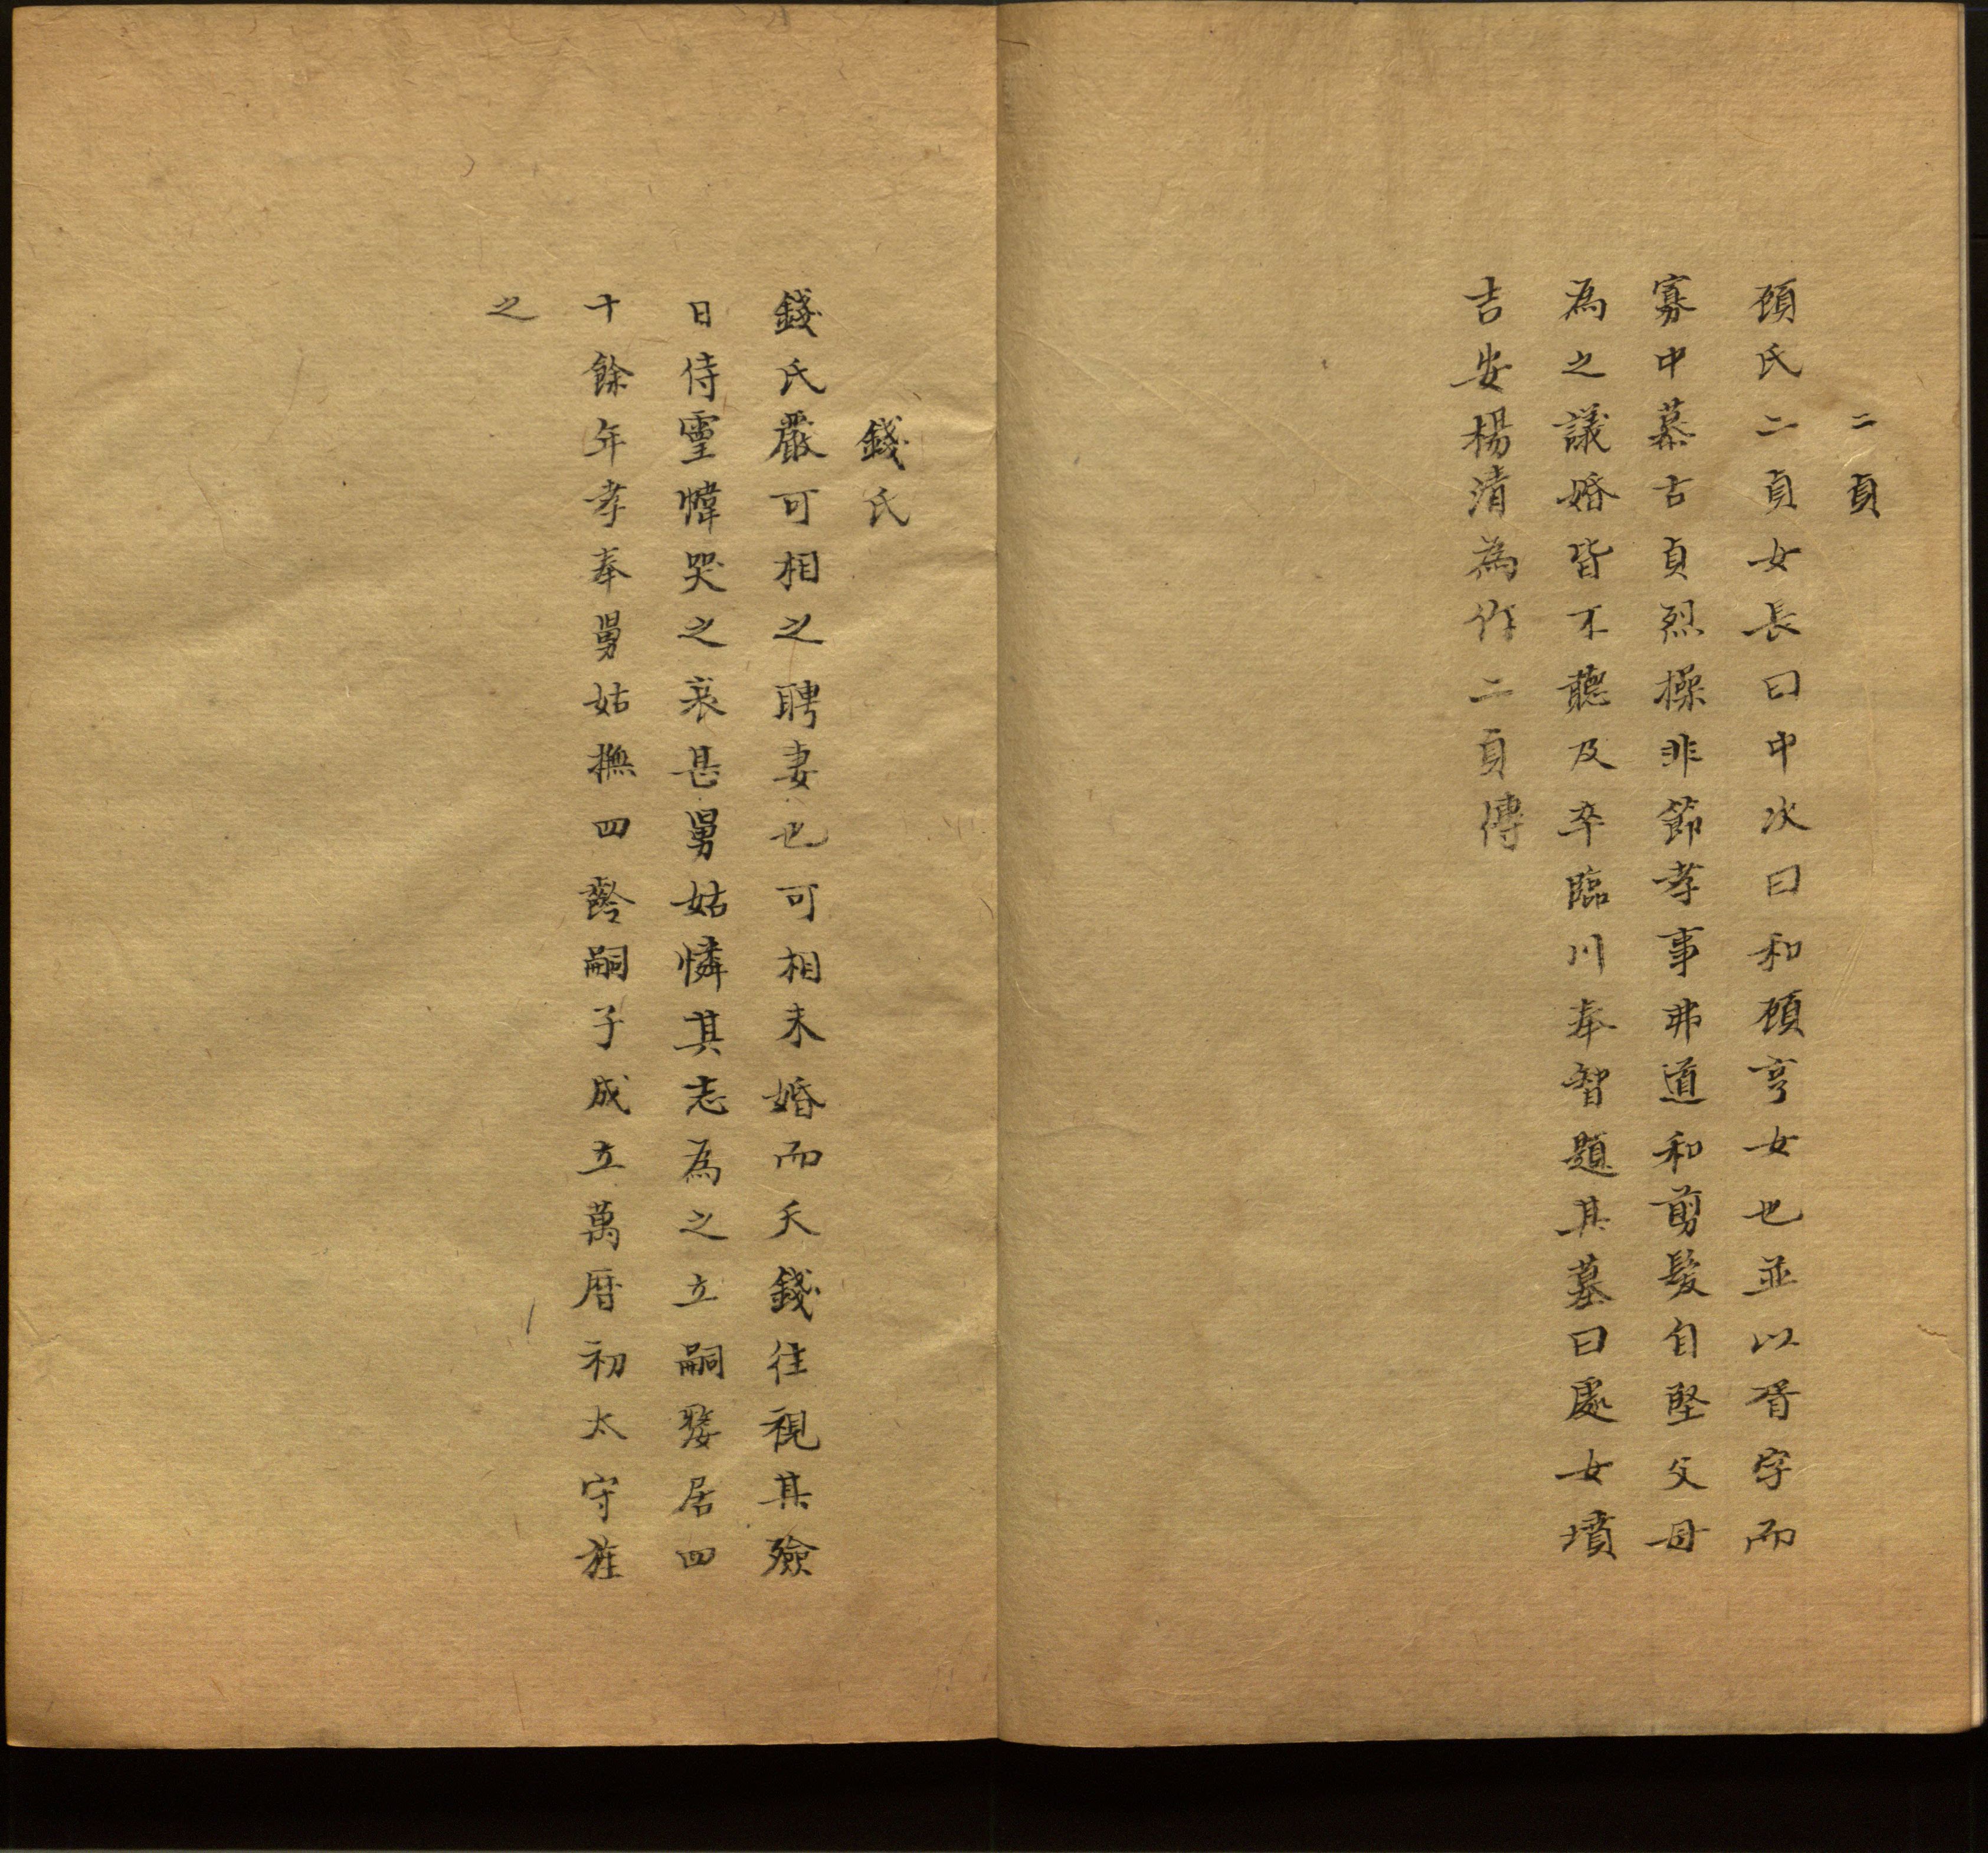 二貞
頋氏二貞女長曰中次曰和頋亨女也並以胥字而
寡中慕古貞烈操非節孝事弗道和剪髮自堅父母
為之議婚皆不聽及卒臨川奉智題其墓曰處女墳
吉安楊清為作二貞傳
錢氏
錢氏嚴可相之聘妻也可相未婚而夭錢往視其殮
日侍霊幃哭之哀甚舅姑憐其志為之立嗣嫠居四
十餘年孝奉舅姑撫四齡嗣子成立萬暦初太守旌
之